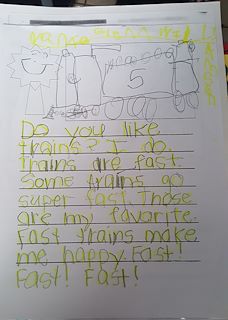 5
Do you like
trains? I do.
Trains are fast
Some trains go
super fast. Those
are my favorite.
Fast trains make
me happy. Fast!
Fast! Fast!